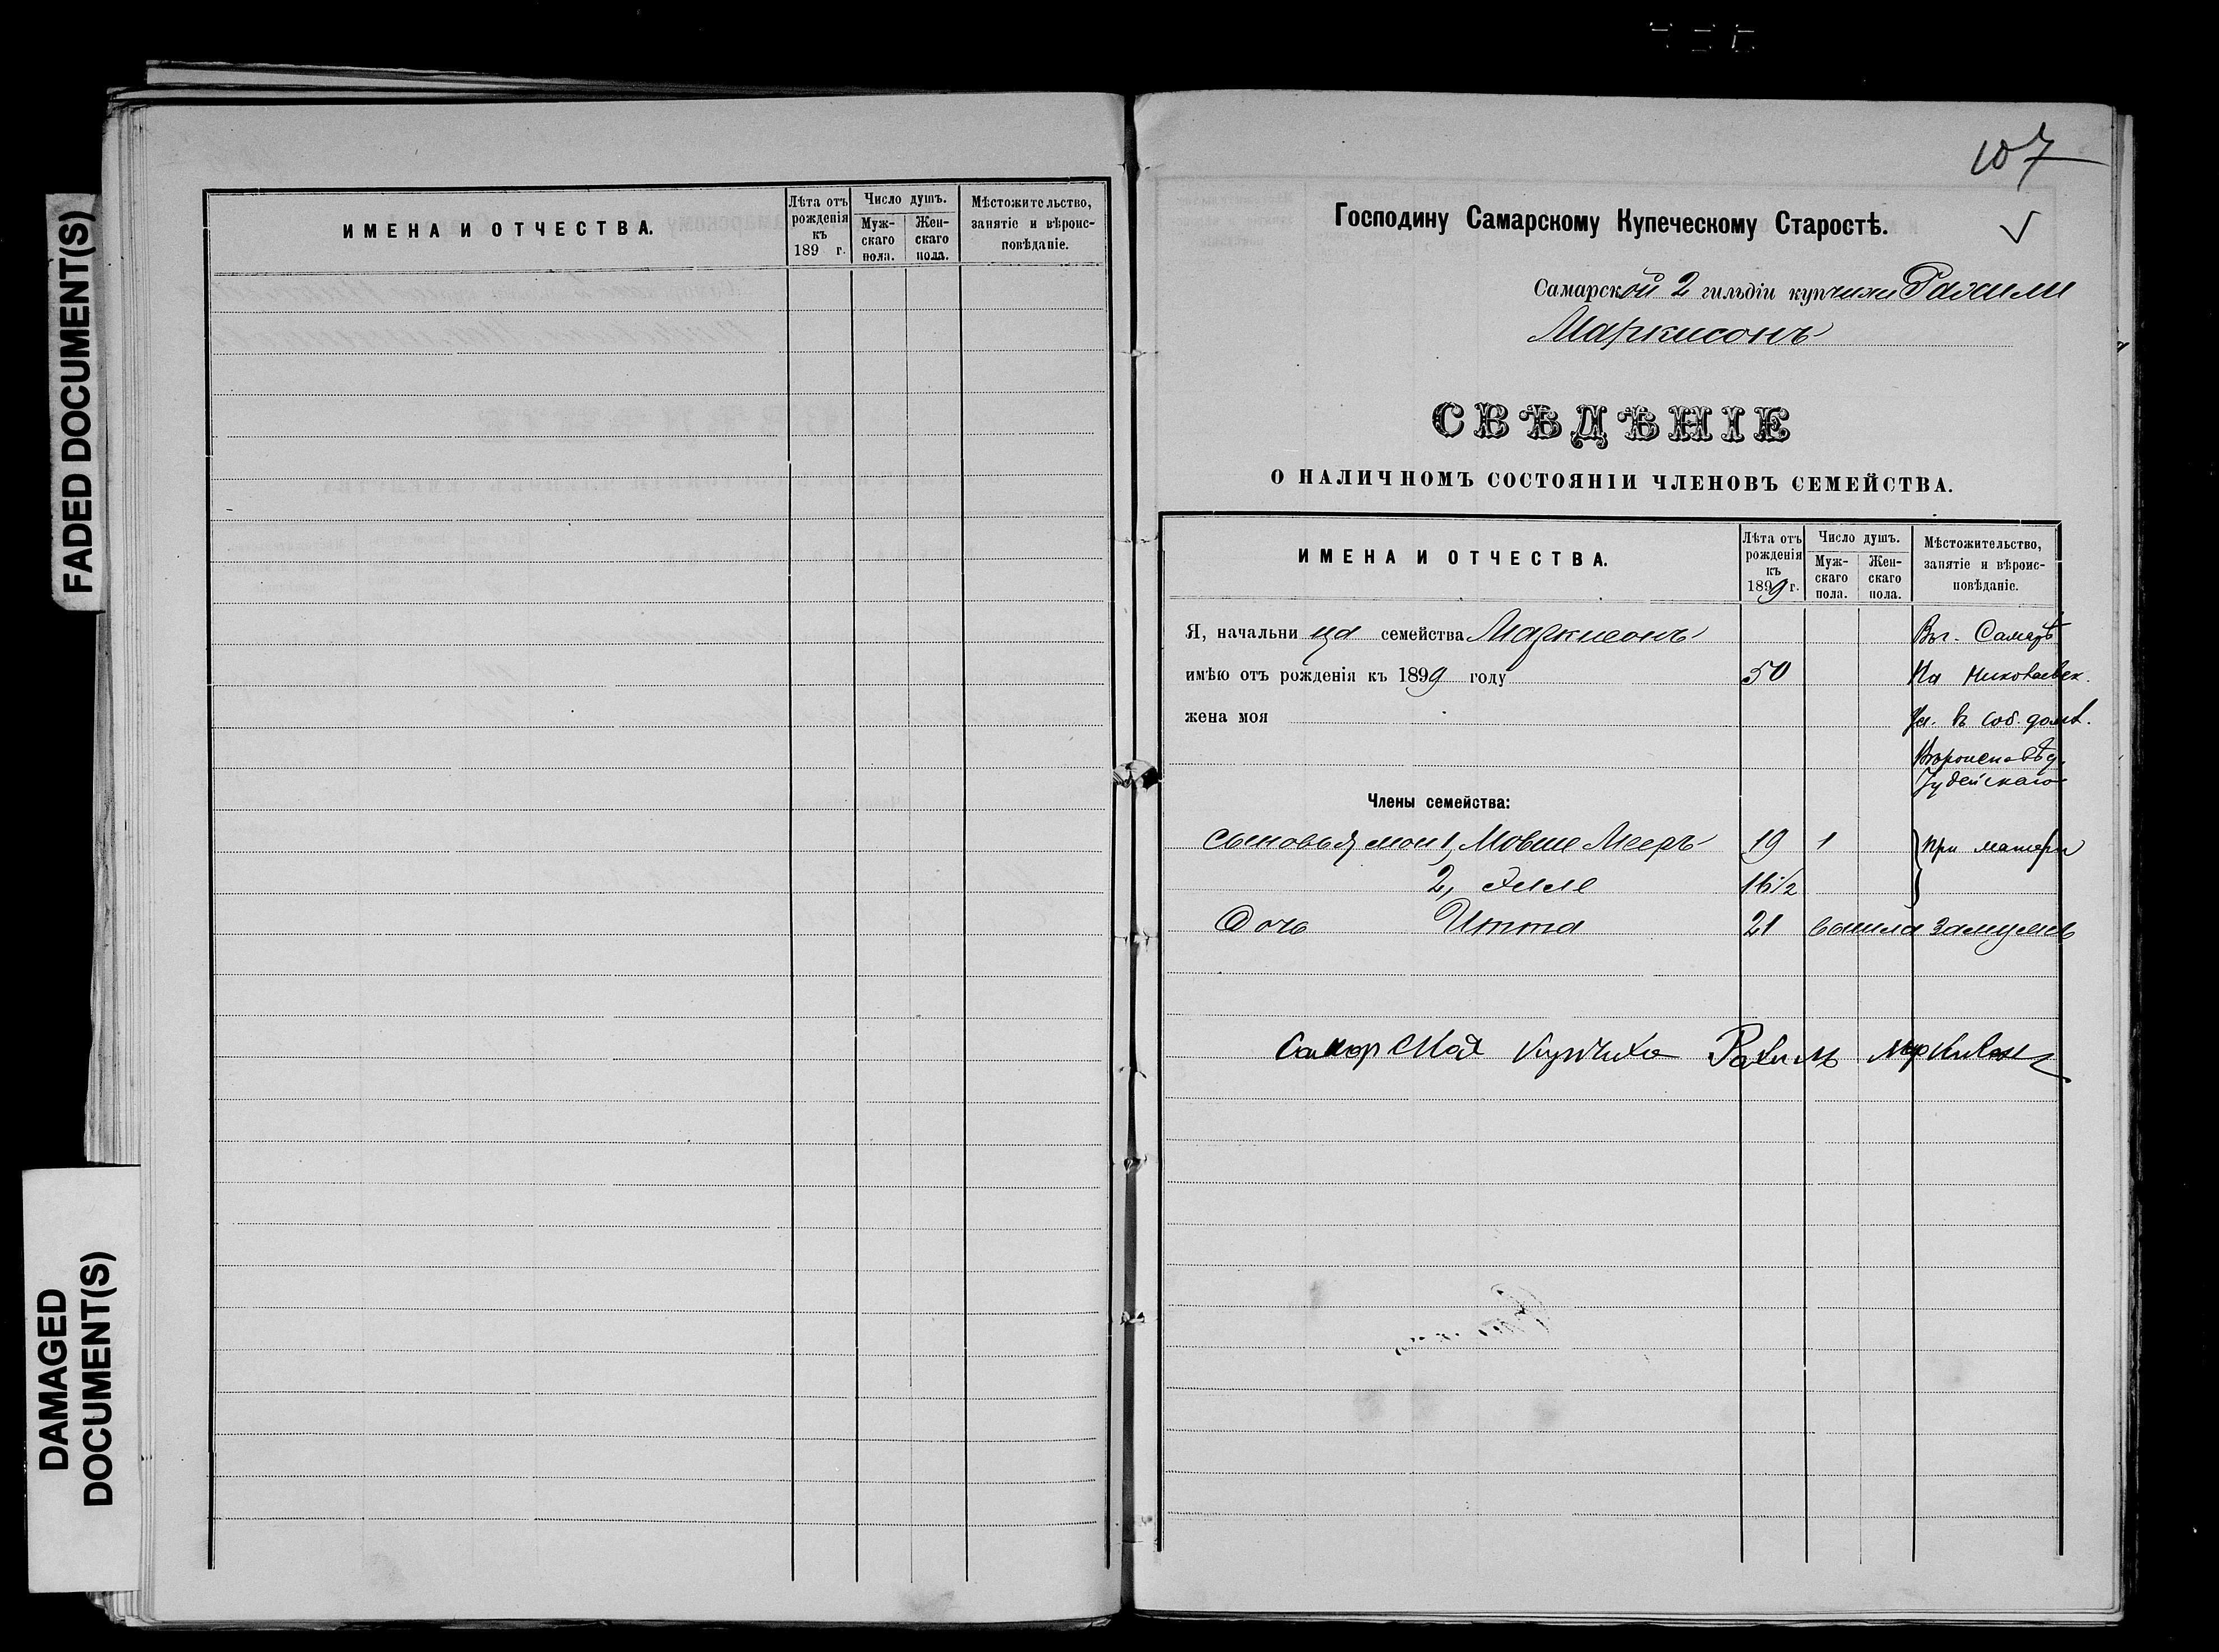 FADED DOCUMENT(S)
DAMAGED
DOCUMENT(S)
ИМЕНА И ОТЧЕСТВА.
Лѣта отъ рожденія къ 189 г.
Число душъ.
Мужскаго пола.
Женскаго пола.
Мѣстожительство, занятіе и вѣроисповѣданіе.
107
Господину Самарскому Купеческому Старостѣ.
Самарской 2 гильдіи купчихи Рахили
Маркисонъ
СВѢДѢНІЕ
О НАЛИЧНОМЪ СОСТОЯНІИ ЧЛЕНОВЪ СЕМЕЙСТВА.
ИМЕНА И ОТЧЕСТВА.
Лѣта отъ рожденія къ 1899 г.
Число душъ.
Мужскаго пола.
Женскаго пола.
Мѣстожительство, занятіе и вѣроисповѣданіе.
Я, начальница семейства Маркисонъ Въ г. Самарѣ
имѣю отъ рожденія къ 1899 году 50 На Николаевск.
жена моя Ул. въ соб. домѣ.
Вѣроисповѣд.
Іудейскаго
Члены семейства:
Сыновья мои 1, Мовше Мееръ 19 1 при матери
2, Элле 16 1/2
Дочь Итта 21 вышла замужъ
Самарская Купчиха Рахиль Маркисон